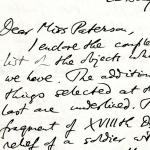 Dear Miss Paterson,
I enclose the comple
list of the objects wh
we have. The addition
things selected at th
last are underlined. T
fragment of XVIIIth D
relief of a soldier wi